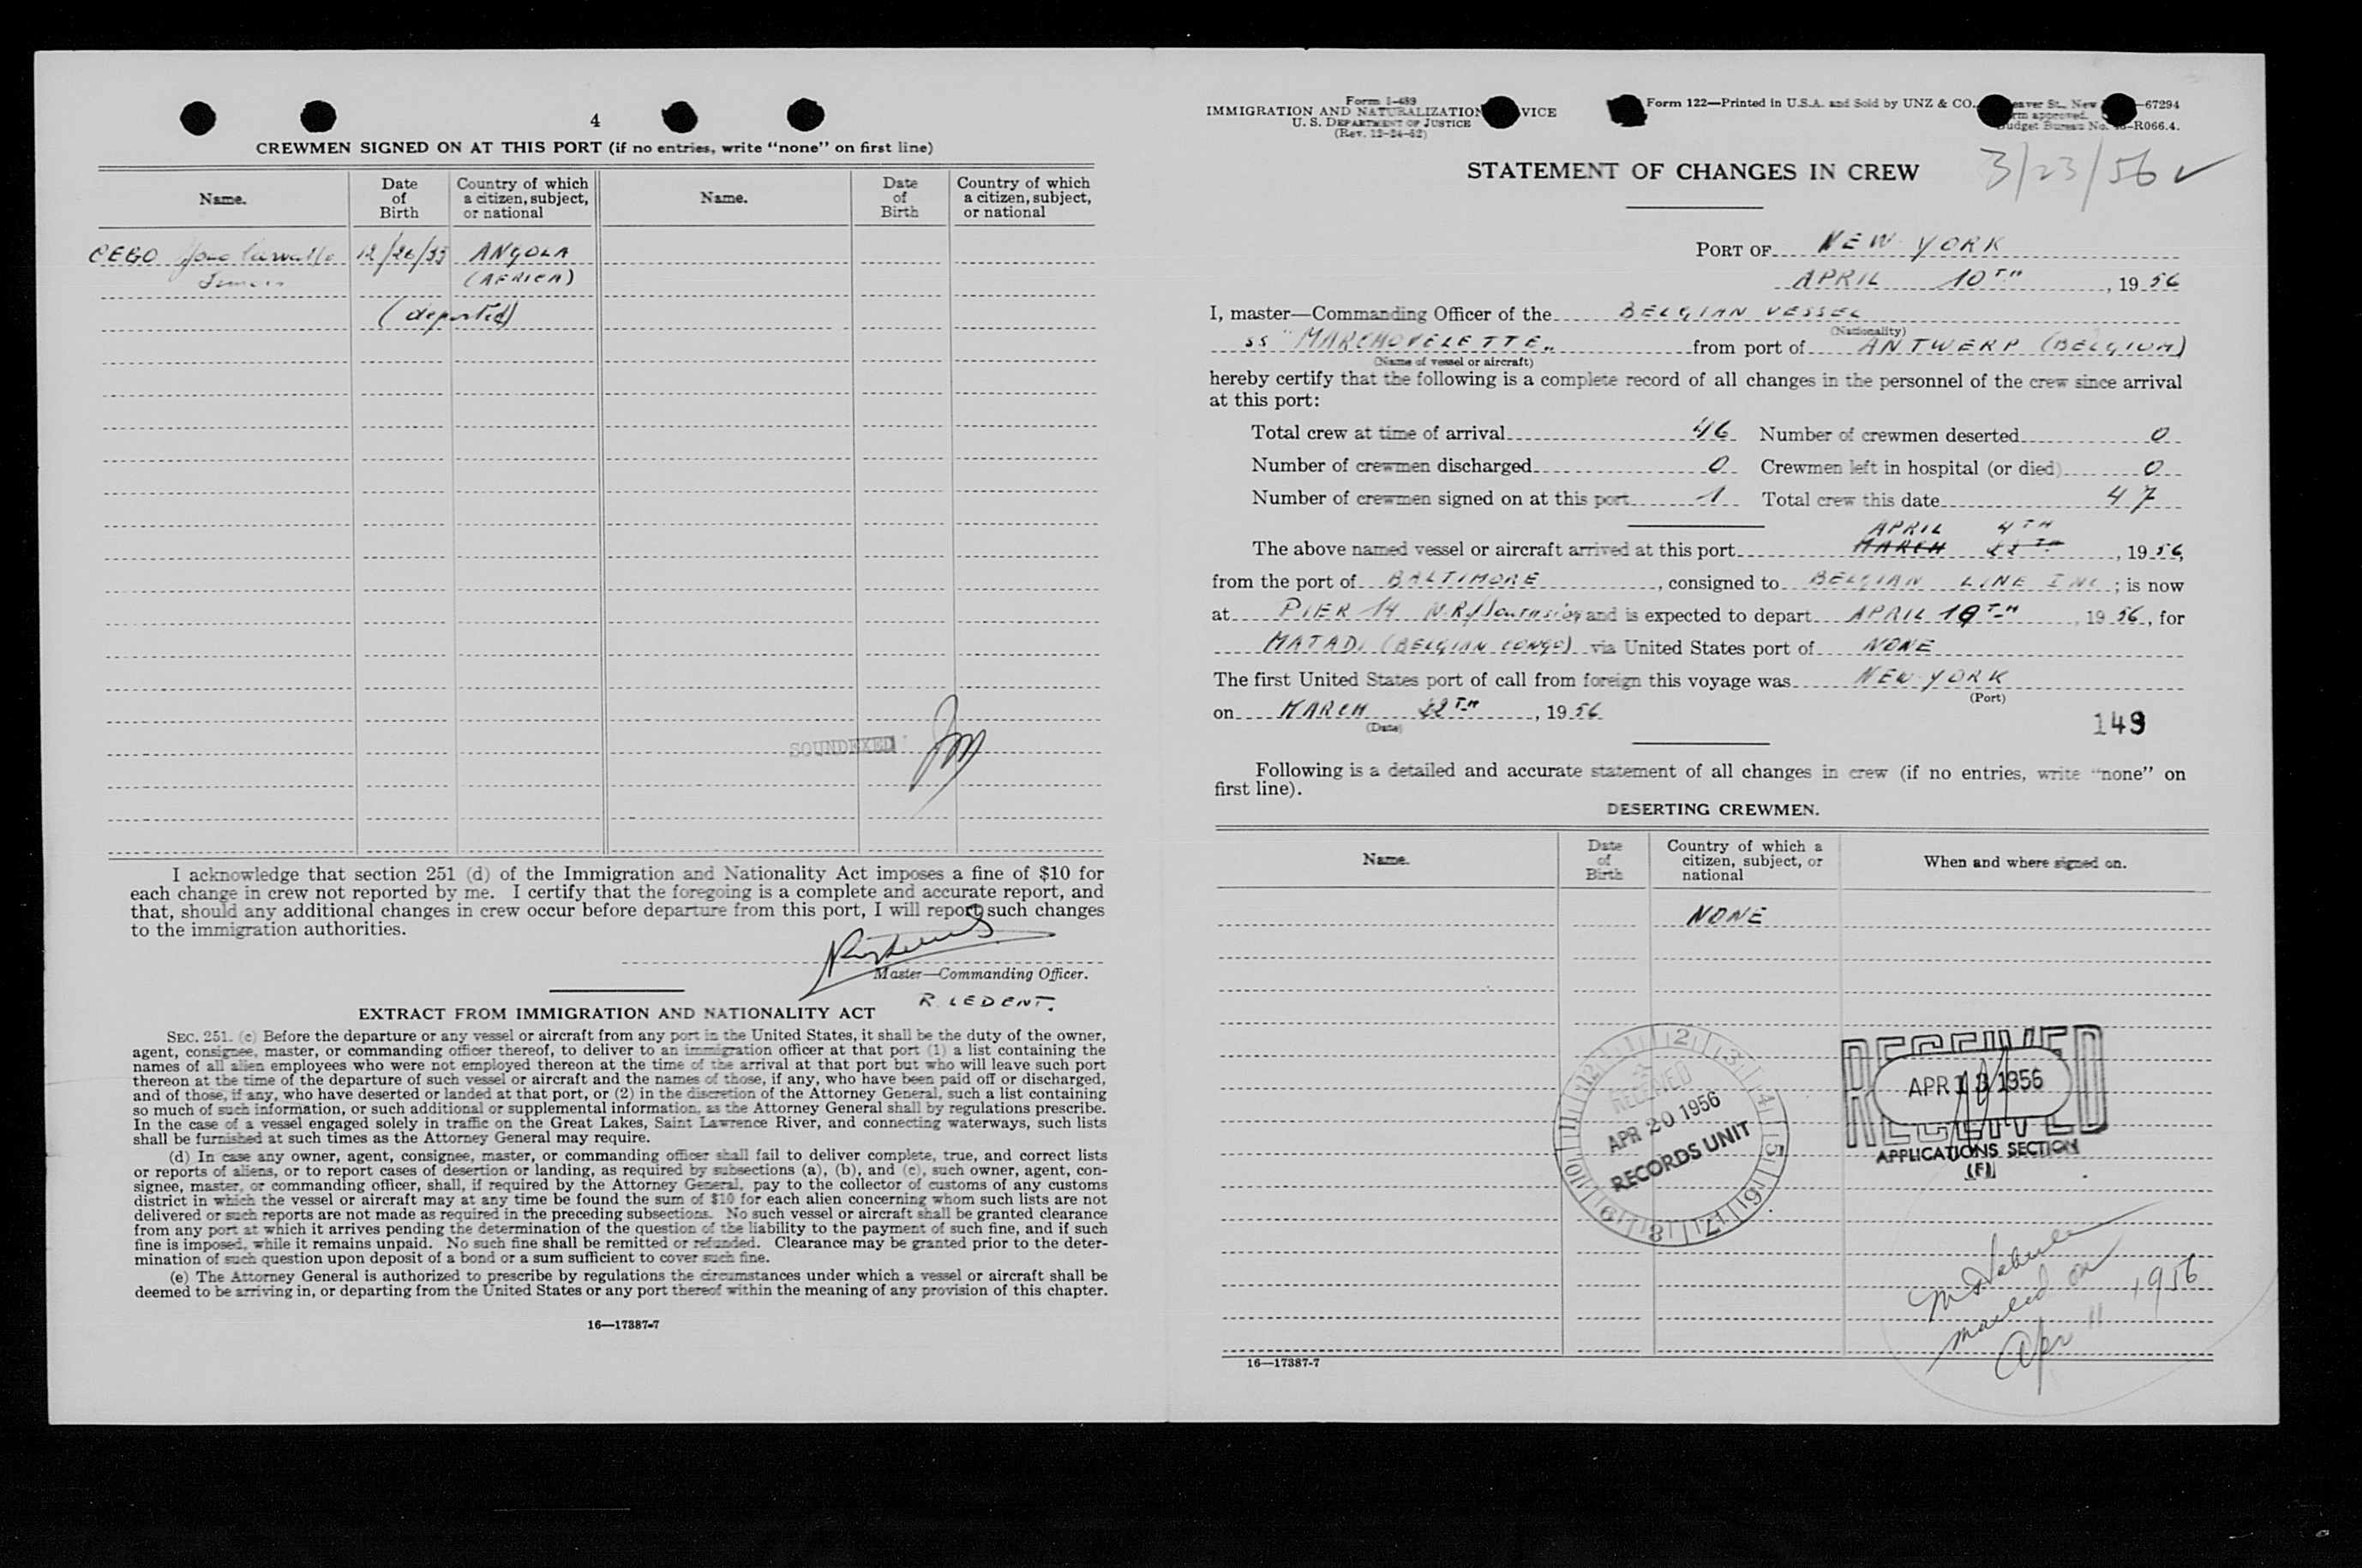 4
CREWMEN SIGNED ON AT THIS PORT (if no entries, write "none" on first line)
Name. Date of Birth Country of which a citizen, subject, or national Name. Date of Birth Country of which a citizen, subject, or national
CEGO 12/26/33 ANGOLA
(AFRICA)
(deported)
SOUNDEXED
I acknowledge that section 251 (d) of the Immigration and Nationality Act imposes a fine of $10 for
each change in crew not reported by me. I certify that the foregoing is a complete and accurate report, and
that, should any additional changes in crew occur before departure from this port, I will report such changes
to the immigration authorities.
Master—Commanding Officer.
R. LEDENT.
EXTRACT FROM IMMIGRATION AND NATIONALITY ACT
SEC. 251. (c) Before the departure or any vessel or aircraft from any port in the United States, it shall be the duty of the owner,
agent, consignee, master, or commanding officer thereof, to deliver to an immigration officer at that port (1) a list containing the
names of all alien employees who were not employed thereon at the time of the arrival at that port but who will leave such port
thereon at the time of the departure of such vessel or aircraft and the names of those, if any, who have been paid off or discharged,
and of those, if any, who have deserted or landed at that port, or (2) in the discretion of the Attorney General, such a list containing
so much of such information, or such additional or supplemental information, as the Attorney General shall by regulations prescribe.
In the case of a vessel engaged solely in traffic on the Great Lakes, Saint Lawrence River, and connecting waterways, such lists
shall be furnished at such times as the Attorney General may require.
(d) In case any owner, agent, consignee, master, or commanding officer shall fail to deliver complete, true, and correct lists
or reports of aliens, or to report cases of desertion or landing, as required by subsections (a), (b), and (c), such owner, agent, con-
signee, master, or commanding officer, shall, if required by the Attorney General, pay to the collector of customs of any customs
district in which the vessel or aircraft may at any time be found the sum of $10 for each alien concerning whom such lists are not
delivered or such reports are not made as required in the preceding subsections. No such vessel or aircraft shall be granted clearance
from any port at which it arrives pending the determination of the question of the liability to the payment of such fine, and if such
fine is imposed, while it remains unpaid. No such fine shall be remitted or refunded. Clearance may be granted prior to the deter-
mination of such question upon deposit of a bond or a sum sufficient to cover such fine.
(e) The Attorney General is authorized to prescribe by regulations the circumstances under which a vessel or aircraft shall be
deemed to be arriving in, or departing from the United States or any port thereof within the meaning of any provision of this chapter.
16—17387-7
Form I-489
IMMIGRATION AND NATURALIZATION VICE
U. S. DEPARTMENT OF JUSTICE
(Rev. 12-24-52)
Form 122—Printed in U.S.A. and Sold by UNZ & CO. eaver St., New —67294
rm approved.
udget Bureau No. -R066.4.
STATEMENT OF CHANGES IN CREW 3/23/56 ✓
PORT OF NEW YORK
APRIL 10TH, 1956
I, master—Commanding Officer of the BELGIAN VESSEL
(Nationality)
SS "MARCHOVELETTE" from port of ANTWERP (BELGIUM)
(Name of vessel or aircraft)
hereby certify that the following is a complete record of all changes in the personnel of the crew since arrival
at this port:
Total crew at time of arrival 46 Number of crewmen deserted 0
Number of crewmen discharged 0 Crewmen left in hospital (or died) 0
Number of crewmen signed on at this port 1 Total crew this date 47
APRIL 4TH
The above named vessel or aircraft arrived at this port MARCH 22TH, 1956,
from the port of BALTIMORE, consigned to BELGIAN LINE INC; is now
at PIER 14 N.R. and is expected to depart APRIL 10TH, 1956, for
MATADI (BELGIAN CONGO) via United States port of NONE
The first United States port of call from foreign this voyage was NEW YORK
(Port)
on MARCH 22TH, 1956
(Date)
149
Following is a detailed and accurate statement of all changes in crew (if no entries, write "none" on
first line).
DESERTING CREWMEN.
Name. Date of Birth Country of which a citizen, subject, or national When and where signed on.
NONE
RECEIVED
APR 20 1956
RECORDS UNIT
1 2 3 4 5 6 7 8 9 10 11 12
RECEIVED
APR 13 1956
RECEIVED
APPLICATIONS SECTION
(F)
mailed on
Apr 11 1956
16—17387-7